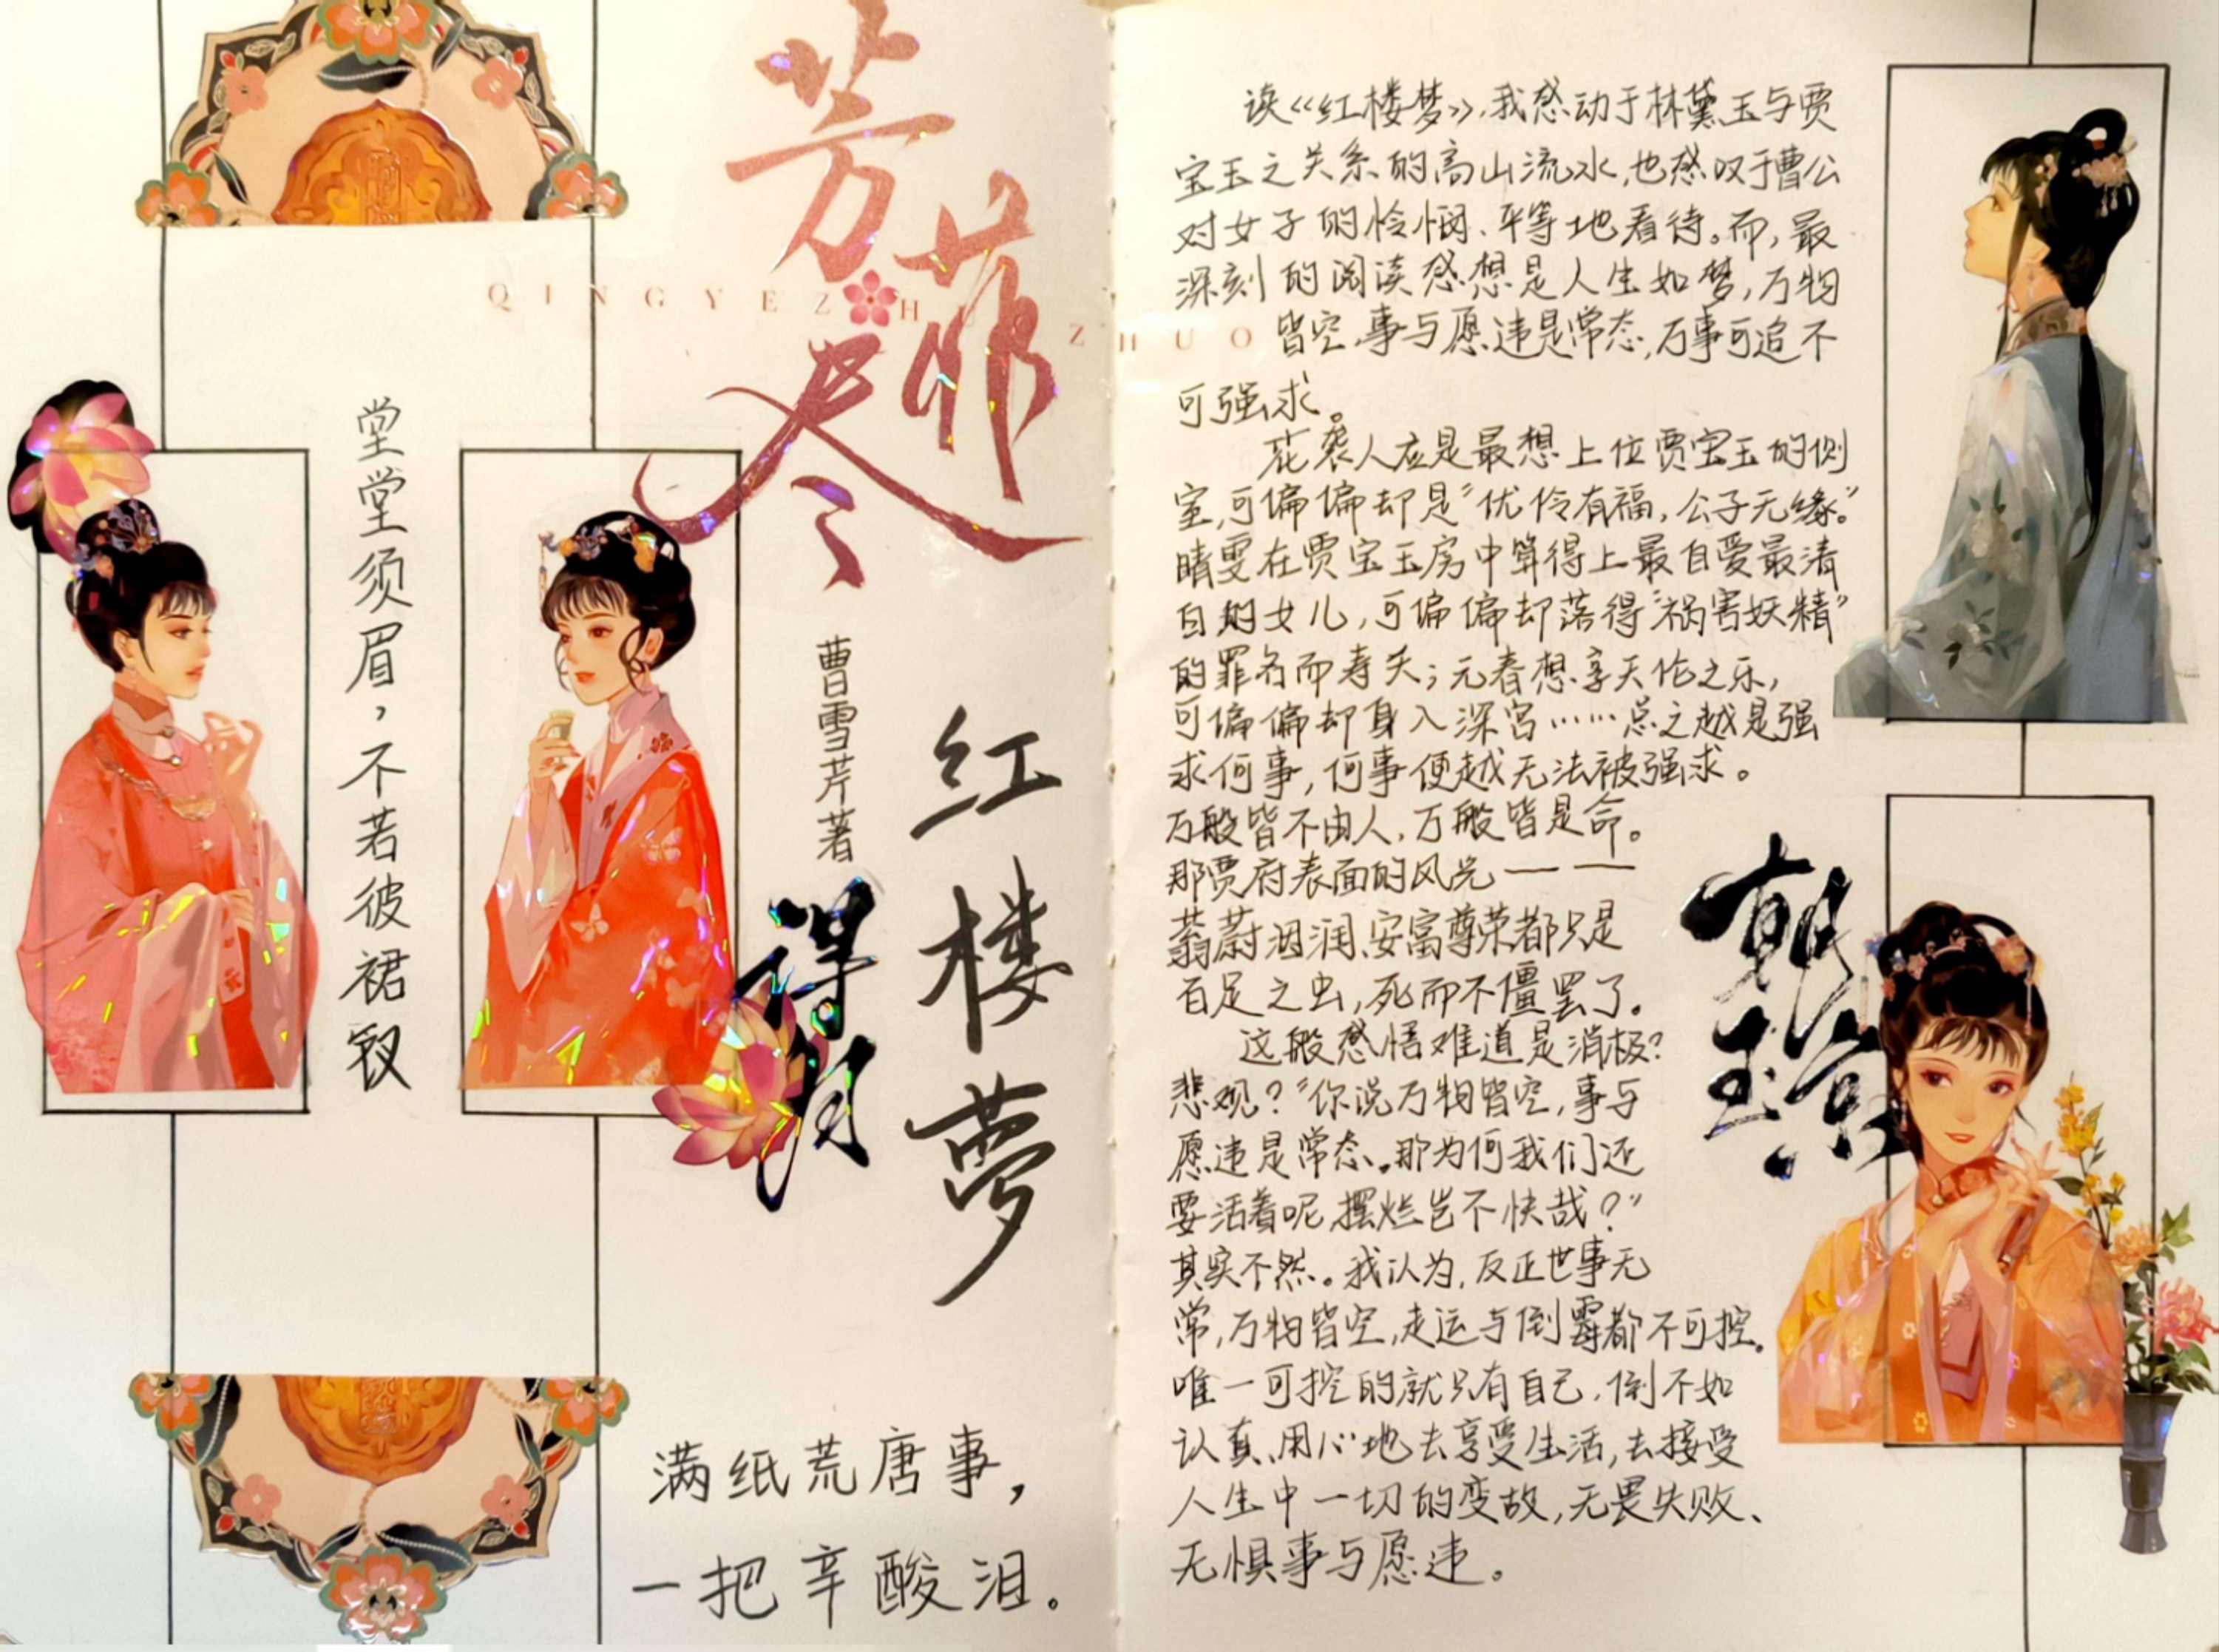 芳菲尽
QINGYEZHUOZHUO
堂堂须眉，不若彼裙钗
曹雪芹著
红楼夢
得月
满纸荒唐事，
一把辛酸泪。
读《红楼梦》，我感动于林黛玉与贾
宝玉之关系的高山流水，也感叹于曹公
对女子的怜悯、平等地看待。而，最
深刻的阅读感想是人生如梦，万物
皆空，事与愿违是常态，万事可追不
可强求。
花袭人应是最想上位贾宝玉的侧
室，可偏偏却是“优伶有福，公子无缘。”
晴雯在贾宝玉房中算得上最自爱最清
白的女儿，可偏偏却落得“祸害妖精”
的罪名而寿夭；元春想享天伦之乐，
可偏偏却身入深宫……总之越是强
求何事，何事便越无法被强求。
万般皆不由人，万般皆是命。
那贾府表面的风光——
蓊蔚洇润、安富尊荣都只是
百足之虫，死而不僵罢了。
这般感悟难道是消极？
悲观？“你说万物皆空，事与
愿违是常态。那为何我们还
要活着呢，摆烂岂不快哉？”
其实不然。我认为，反正世事无
常，万物皆空，走运与倒霉都不可控。
唯一可控的就只有自己，倒不如
认真、用心地去享受生活，去接受
人生中一切的变故，无畏失败、
无惧事与愿违。
朝
玉京